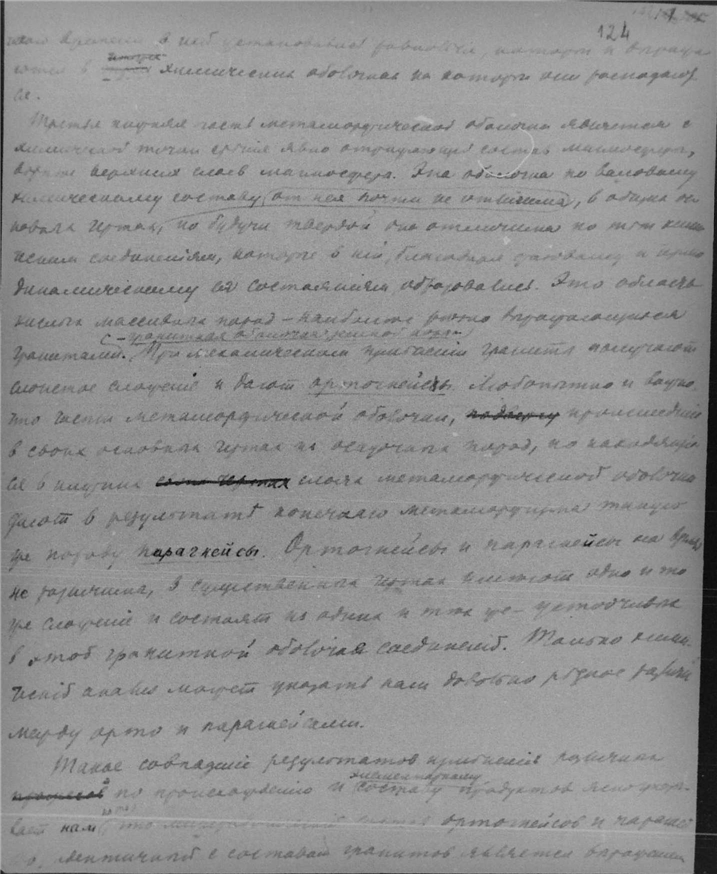 124
времени в ней установилось равновесие, которое и выража
ется в химических оболочках на которые они распадают
ся.
Третья нижняя часть метаморфической оболочки является с
химической точки зрения явно отвечающей состав магмосферы,
верхних слоев магмосферы. Эта оболочка по валовому
химическому составу, от нея почти не отличима, в общих ос
новных чертах, но будучи твердой она отлична по тем хими
ческим соединениям, которые в ней, благодаря фазовому и термо
динамическому ея состояниям образовались. Это область
кислых массивных пород – наиболее резко выражающихся
(– гранитная оболочка земной коры
гранитами. При механическом изменении граниты получают
слоистое сложение и дают ортогнейсы. Любопытно и важно,
что части метаморфической оболочки, происшедшие
в своих основных чертах из осадочных пород, но находящие
ся в нижних слоях метаморфической оболочки
дают в результате конечного метаморфизма такую
же породу парагнейсы. Ортогнейсы и парагнейсы на
не различимы, в существенных чертах имеют одно и то
же сложение и состоят из одних и тех же – устойчивых
в этой гранитной оболочке соединений. Только хими-
ческий анализ может указать нам довольно резкое различие
между орто и парагнейсами.
Такое совпадение результатов изменений различных
элементарному
по происхождению и составу продуктов ясно указы-
вает нам, что состав ортогнейсов и парагней
идентичный с составом гранитов является выражением